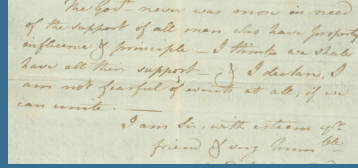 The Govt. never was more in need
of the support of all men who have property
influence & principle — I think we shall
have all their support —, & I declare, I
am not fearful of events at all, if we
can unite. —
I am Sir, with esteem yr.
friend & very humble